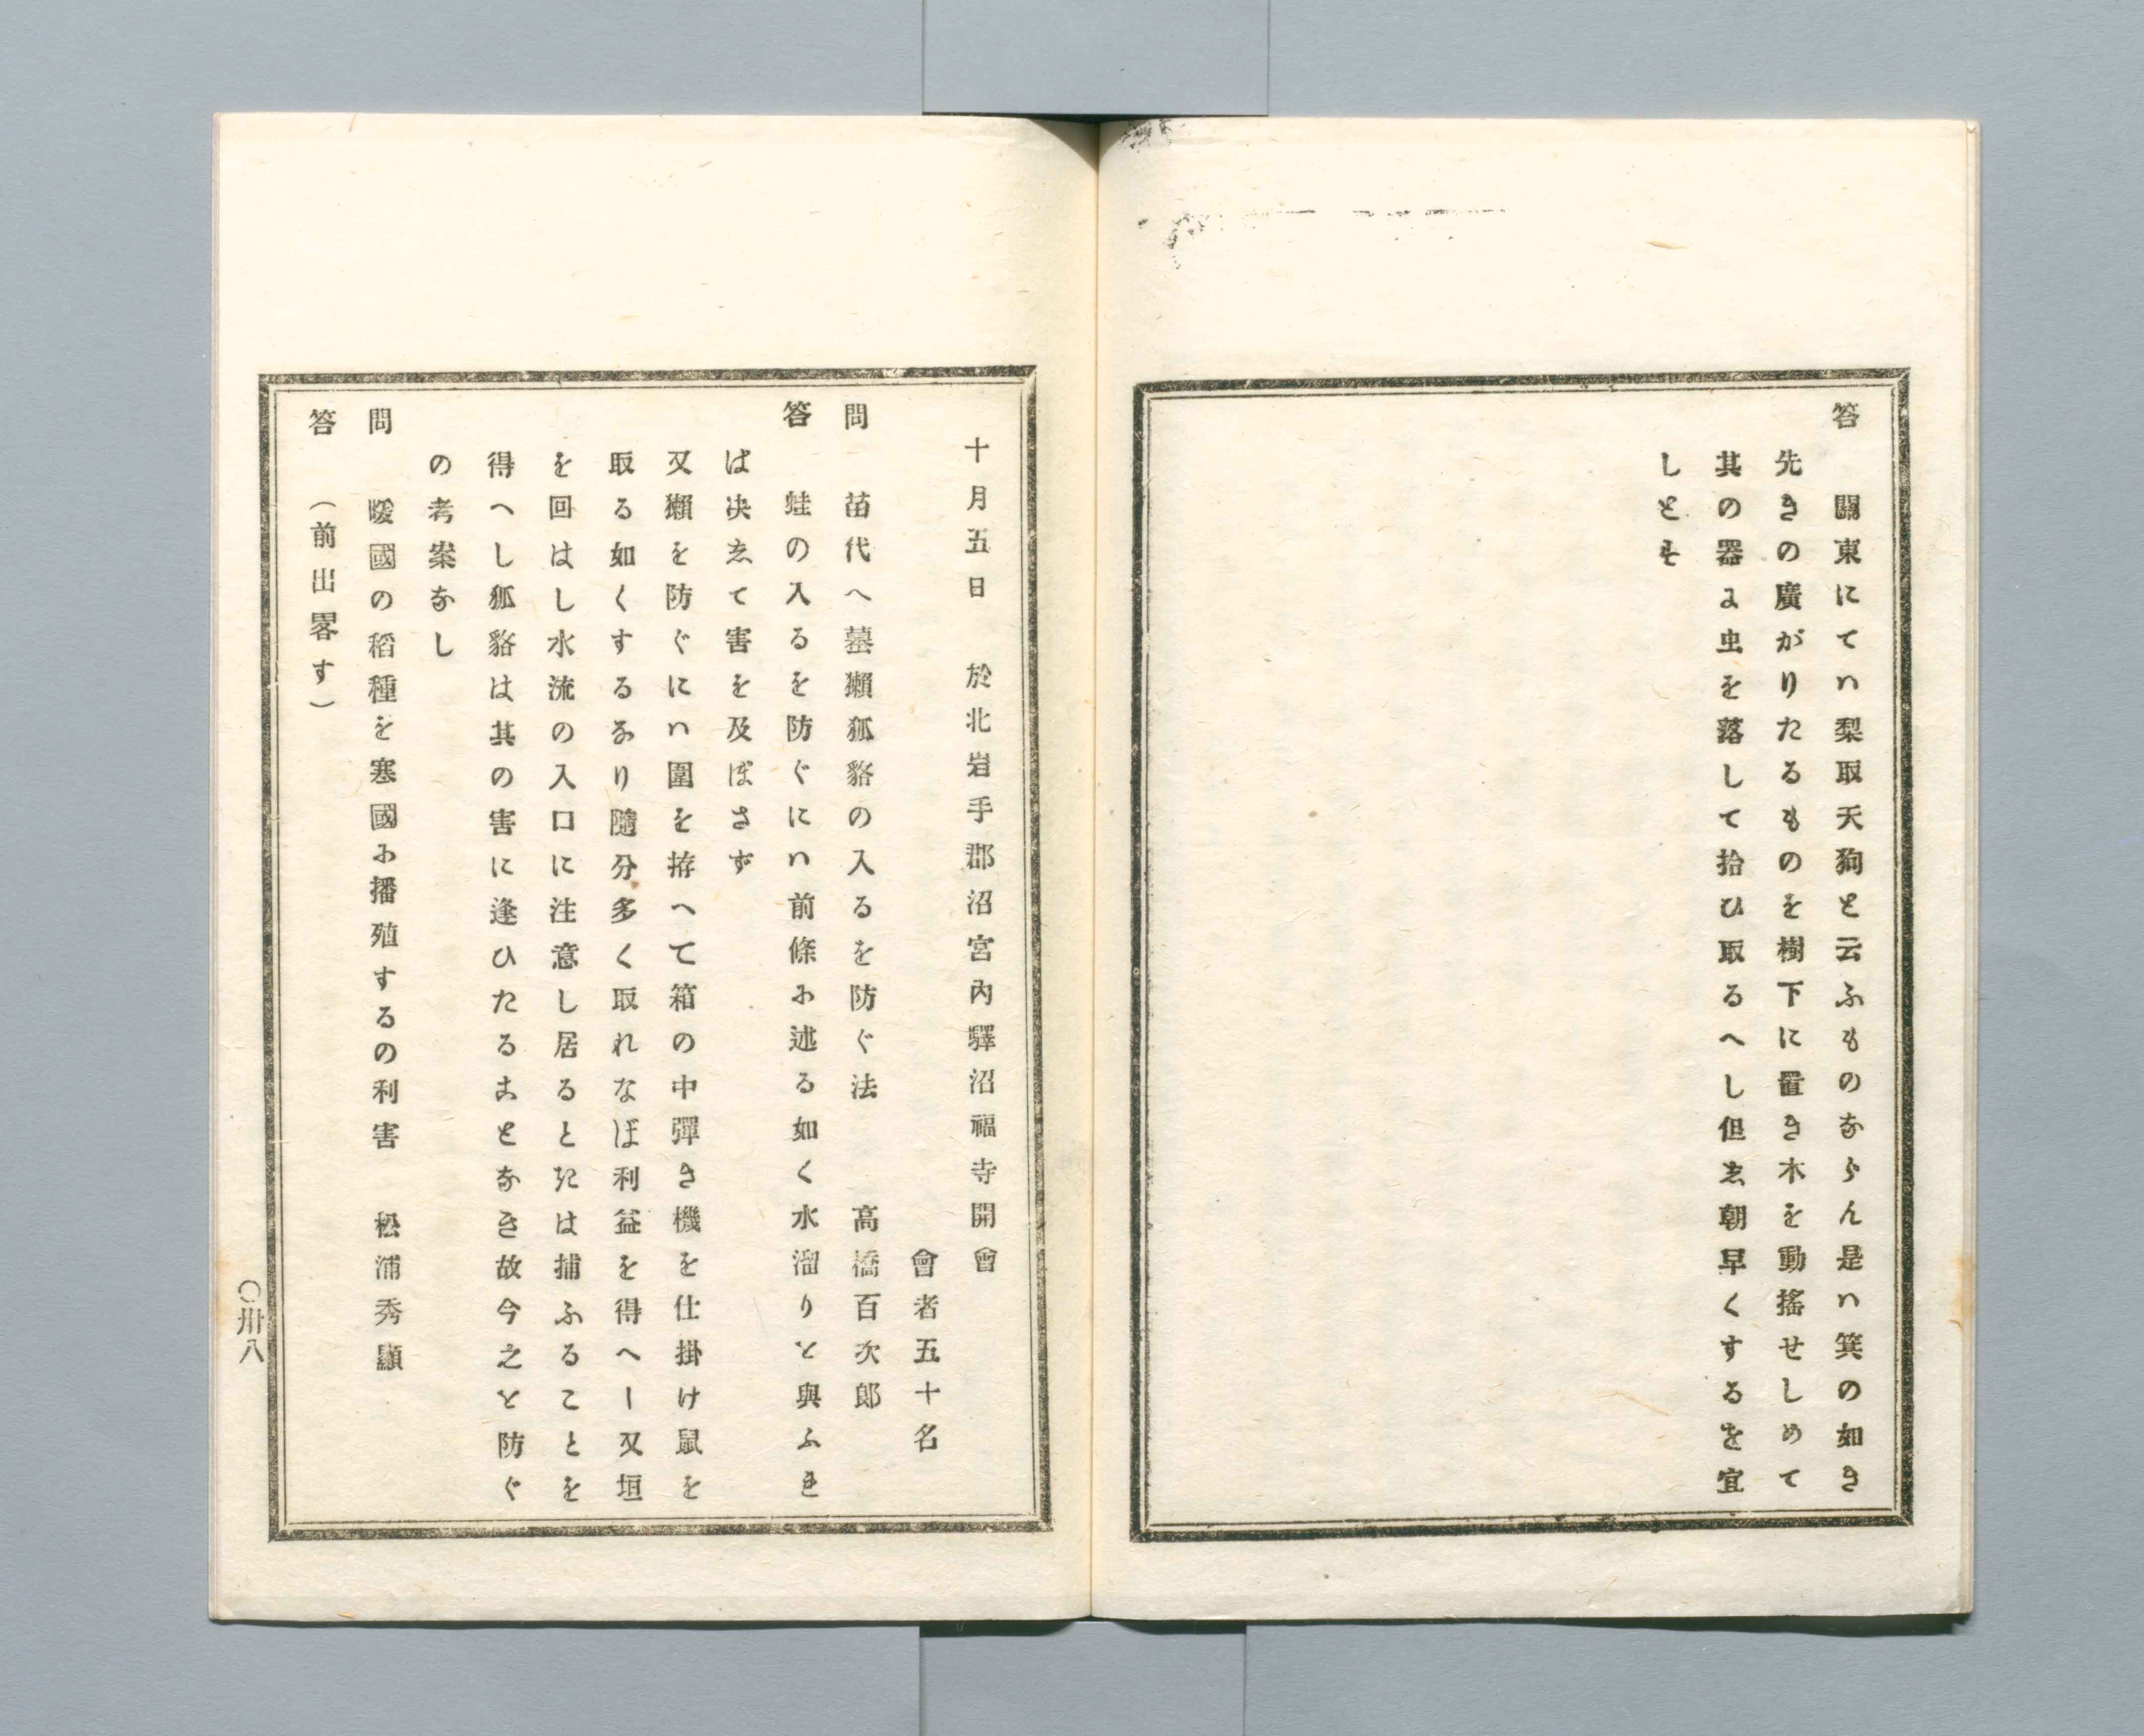 答　關東にてハ梨取天狗と云ふものならん是ハ箕の如き
先きの廣がりたるものを樹下に置き木を動搖せしめて
其の器に虫を落して拾ひ取るへし但し朝早くするを宜
しとす
十月五日　於北岩手郡沼宮內驛沼福寺開會
會者五十名
問　苗代へ蟇獺狐貉の入るを防ぐ法　高橋百次郎
答　蛙の入るを防ぐにハ前條に述る如く水溜りを與ふれ
ば决して害を及ぼさず
又獺を防ぐにハ圍を拵へて箱の中彈き機を仕掛け鼠を
取る如くするなり隨分多く取れなば利益を得へし又垣
を回はし水流の入口に注意し居るときは捕ふることを
得へし狐貉は其の害に逢ひたることなき故今之を防ぐ
の考案なし
問　暖國の稻種を寒國に播殖するの利害　松浦秀顯
答　（前出畧す）
〇卅八